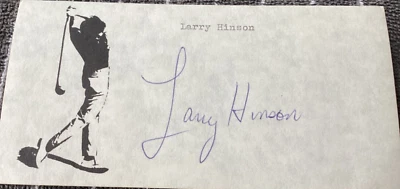 Larry Hinson
Larry Hinson